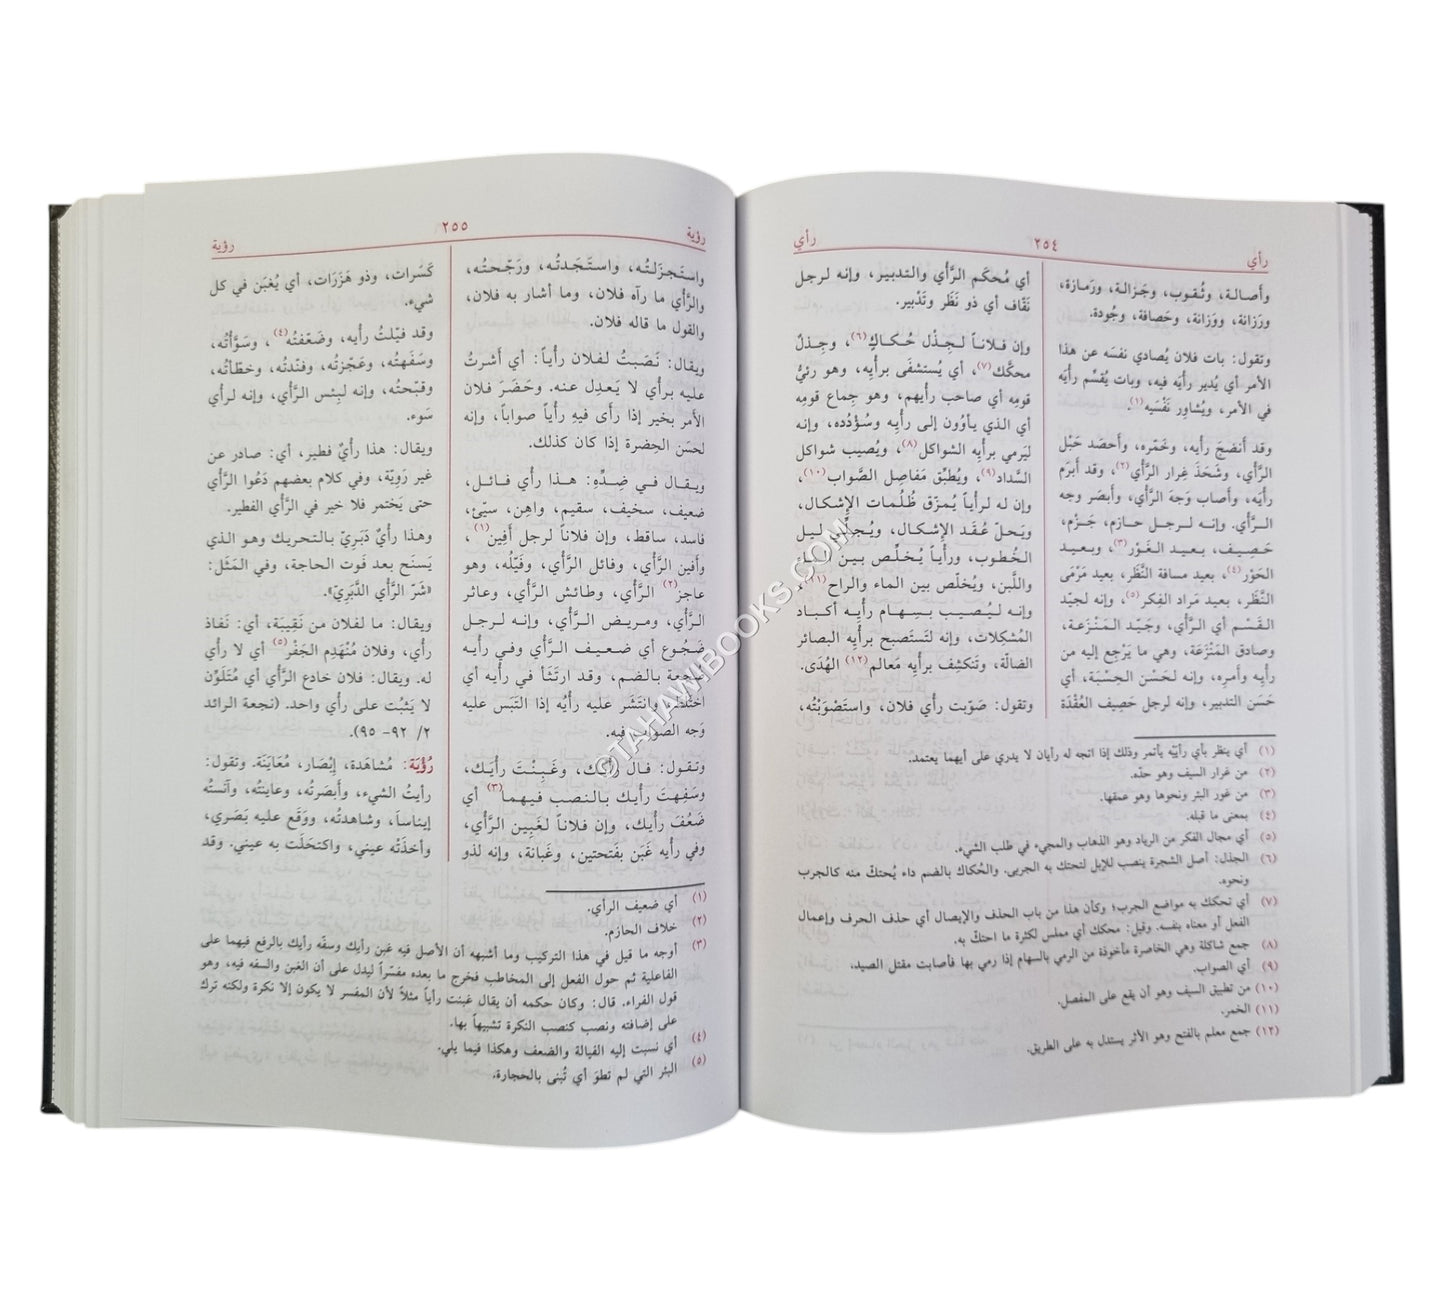 رأي
٢٥٤
رأي
وأصالة، وثُقوب، وجَزالة، ورَمازة،
ورَزانة، ووَزانة، وحَصافة، وجُودة.
وتقول: بات فلان يُصادي نفسَه عن هذا
الأمر أي يُدير رأيَه فيه، وبات يُقسِّم رأيَه
في الأمر، ويُشاوِر نَفْسَيه(١).
وقد أنضجَ رأيه، وخَمّره، وأحصَد حَبْل
الرَّأي، وشَحَذَ غِرار الرَّأي(٢)، وقد أبرَم
رأيَه، وأصاب وَجهَ الرَّأي، وأبصَر وجه
الـرَّأي. وإنـه لـرجـل حـازم، جَـزْم،
حَصيف، بعيد الغَوْر(٣)، وبعيد
الحَوْر(٤)، بعيد مسافة النَّظَر، بعيد مَرْمَى
النَّظَر، بعيد مَراد الفِكر(٥)، وإنه لجيّد
القَسْم أي الرَّأي، وجَيّد المَنْزعَة،
وصادق المَنْزَعَة، وهي ما يَرْجِع إليه من
رأيِه وأمرِه. وإنه لحَسْن الحِسْبَة، أي
حَسَن التدبير، وإنه لرجل حَصِيف العُقْدَة
أي مُحكَم الرَّأي والتدبير، وإنه لرجل
نَقّاف أي ذو نَظَر وتَدْبير.
وإن فلاناً لَجِذْل حُكاكٍ(٦)، وجِذلٌ
محكَّك(٧)، أي يُستشفَى برأيِه، وهو رئيُّ
قومِه أي صاحب رأيهم، وهو جِماع قومِه
أي الذي يأوُون إلى رأيِه وسُؤدُده، وإنه
ليَرمي برأيِه الشواكل(٨)، ويُصيب شواكل
السَّداد(٩)، ويُطبِّق مَفاصِل الصَّواب(١٠)،
وإن له لرأياً يُمزّق ظُلُمات الإشكال،
ويَحلّ عُقَد الإشكال، ويُجلّي ليل
الخُطوب، ورأياً يُخلِّص بين الماء
واللَّبن، ويُخلّص بين الماء والراح(١١)،
وإنه ليُصيب بسِهام رأيِه أكباد
المُشكِلات، وإنه لتَستَصبح برأيِه البصائر
الضالّة، وتَنكشِف برأيِه مَعالم(١٢) الهُدَى.
وتقول: صَوّبت رأي فلان، واستَصْوَبْتُه،
(١) أي ينظر بأي رأييّه يأتمر وذلك إذا اتجه له رأيان لا يدري على أيهما يعتمد.
(٢) من غرار السيف وهو حدّه.
(٣) من غور البئر ونحوها وهو عمقها.
(٤) بمعنى ما قبله.
(٥) أي مجال الفكر من الرياد وهو الذهاب والمجيء في طلب الشيء.
(٦) الجذل: أصل الشجرة ينصب للإبل لتحتك به الجربى. والحُكاك بالضم داء يُحتكّ منه كالجرب
ونحوه.
(٧) أي تحتكك به مواضع الجرب؛ وكأن هذا من باب الحذف والإيصال أي حذف الحرف وإعمال
الفعل أو معناه بنفسه. وقيل: محكك أي مملس لكثرة ما احتكّ به.
(٨) جمع شاكلة وهي الخاصرة مأخوذة من الرمي بالسهام إذا رمي بها فأصابت مقتل الصيد.
(٩) أي الصواب.
(١٠) من تطبيق السيف وهو أن يقع على المفصل.
(١١) الخمر.
(١٢) جمع معلم بالفتح وهو الأثر يستدل به على الطريق.
رؤية
٢٥٥
رؤية
واستَجزَلتُه، واستَجَدتُه، ورَجّحتُه،
والرَّأي ما رآه فلان، وما أشار به فلان،
والقول ما قاله فلان.
ويقال: نَصَبتُ لفلان رأياً: أي أشرتُ
عليه برأي لا يَعدِل عنه. وحَضَرَ فلان
الأمر بخير إذا رأى فيه رأياً صواباً، وإنه
لحسَن الحِضرة إذا كان كذلك.
ويقال في ضِدّهِ: هذا رأي فائل،
ضعيف، سخيف، سقيم، واهِن، سيّئ،
فاسد، ساقط، وإن فلاناً لرجل أفِين(١)،
وأفين الرَّأي، وفائل الرَّأي، وفَيّلُه، وهو
عاجز(٢) الرَّأي، وطائش الرَّأي، وعاثر
الرَّأي، ومريض الرَّأي، وإنه لرجل
ضَجُوع أي ضعيف الرَّأي وفي رأيه
ضُجعة بالضم، وقد ارتَثَأ في رأيه أي
اختَلَط، وانتَشَر عليه رأيُه إذا التَبَس عليه
وَجه الصواب فيه.
وتقول: فالَ رأيُك، وغَبِنْتَ رأيَك،
وسَفِهتَ رأيك بالنصب فيهما(٣) أي
ضَعُفَ رأيك، وإن فلاناً لغَبِين الرَّأي،
وفي رأيه غَبَن بفَتحتين، وغَبانة، وإنه لذو
كَسَرات، وذو هَزَرَات، أي يُغبَن في كل
شيء.
وقد فيّلتُ رأيه، وضَعّفتُه(٤)، وسَوَّأتُه،
وسَفّهتُه، وعَجّزتُه، وفنّدتُه، وخطّأتُه،
وقبّحتُه، وإنه لبِئس الرَّأي، وإنه لرأي
سَوء.
ويقال: هذا رأيٌ فطير، أي: صادر عن
غير رَوِيّة، وفي كلام بعضهم دَعُوا الرَّأي
حتى يَختمر فلا خير في الرَّأي الفطير.
وهذا رأيٌ دَبَريّ بالتحريك وهو الذي
يَسنَح بعد فَوت الحاجة، وفي المَثَل:
«شَرّ الرَّأي الدَّبَريّ».
ويقال: ما لفلان مَن نَقِيبَة، أي: نَفاذ
رأي، وفلان مُنْهَدِم الجَفْر(٥) أي لا رأي
له. ويقال: فلان خادع الرَّأي أي مُتَلَوِّن
لا يَثبُت على رأي واحد. (نجعة الرائد
٢/ ٩٢- ٩٥).
رُؤْيَة: مُشاهَدة، إبْصَار، مُعَايَنَة. وتقول:
رأيتُ الشيء، وأبصَرتُه، وعاينتُه، وآنستُه
إيناساً، وشاهدتُه، ووَقَع عليه بَصَري،
وأخذَتْه عيني، واكتحَلَت به عيني. وقد
(١) أي ضعيف الرأي.
(٢) خلاف الحازم.
(٣) أوجه ما قيل في هذا التركيب وما أشبهه أن الأصل فيه غبن رأيك وسفّه رأيك بالرفع فيهما على
الفاعلية ثم حول الفعل إلى المخاطب فخرج ما بعده مفسّراً ليدل على أن الغبن والسفه فيه، وهو
قول الفراء. قال: وكان حكمه أن يقال غبنت رأياً مثلاً لأن المفسر لا يكون إلا نكرة ولكنه ترك
على إضافته ونصب كنصب النكرة تشبيهاً بها.
(٤) أي نسبت إليه الفيالة والضعف وهكذا فيما يلي.
(٥) البئر التي لم تطوَ أي تُبنى بالحجارة.
©TAHAWIBOOKS.COM